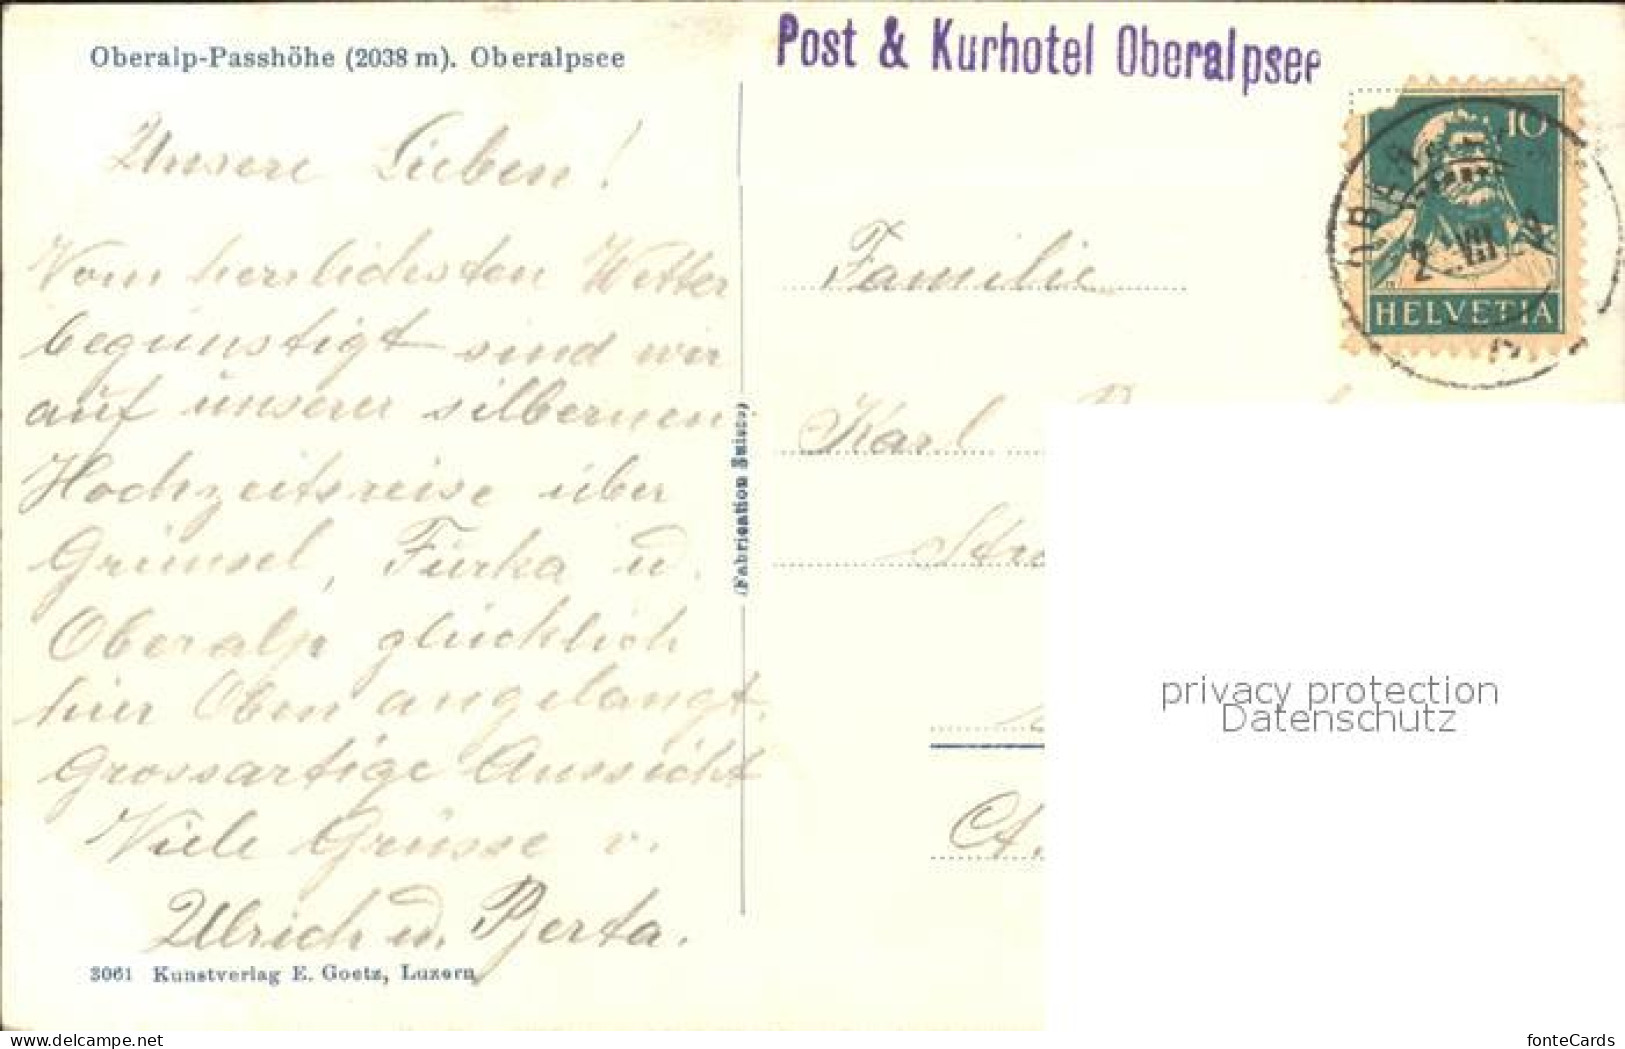 Oberalp-Passhöhe (2038 m). Oberalpsee
Post & Kurhotel Oberalpsee
10
HELVETIA
2. VII
Unsere Lieben!
Vom herrlichsten Wetter
begünstigt sind wir
auf unserer silbernen
Hochzeitsreise über
Grimsel, Furka u.
Oberalp glücklich
hier Oben angelangt.
Grossartige Aussicht
Viele Grüsse v.
Ulrich u. Berta.
3061 Kunstverlag E. Goetz, Luzern
(Fabrication Suisse)
Familie
Karl
privacy protection
Datenschutz
www.delcampe.net
fonteCards